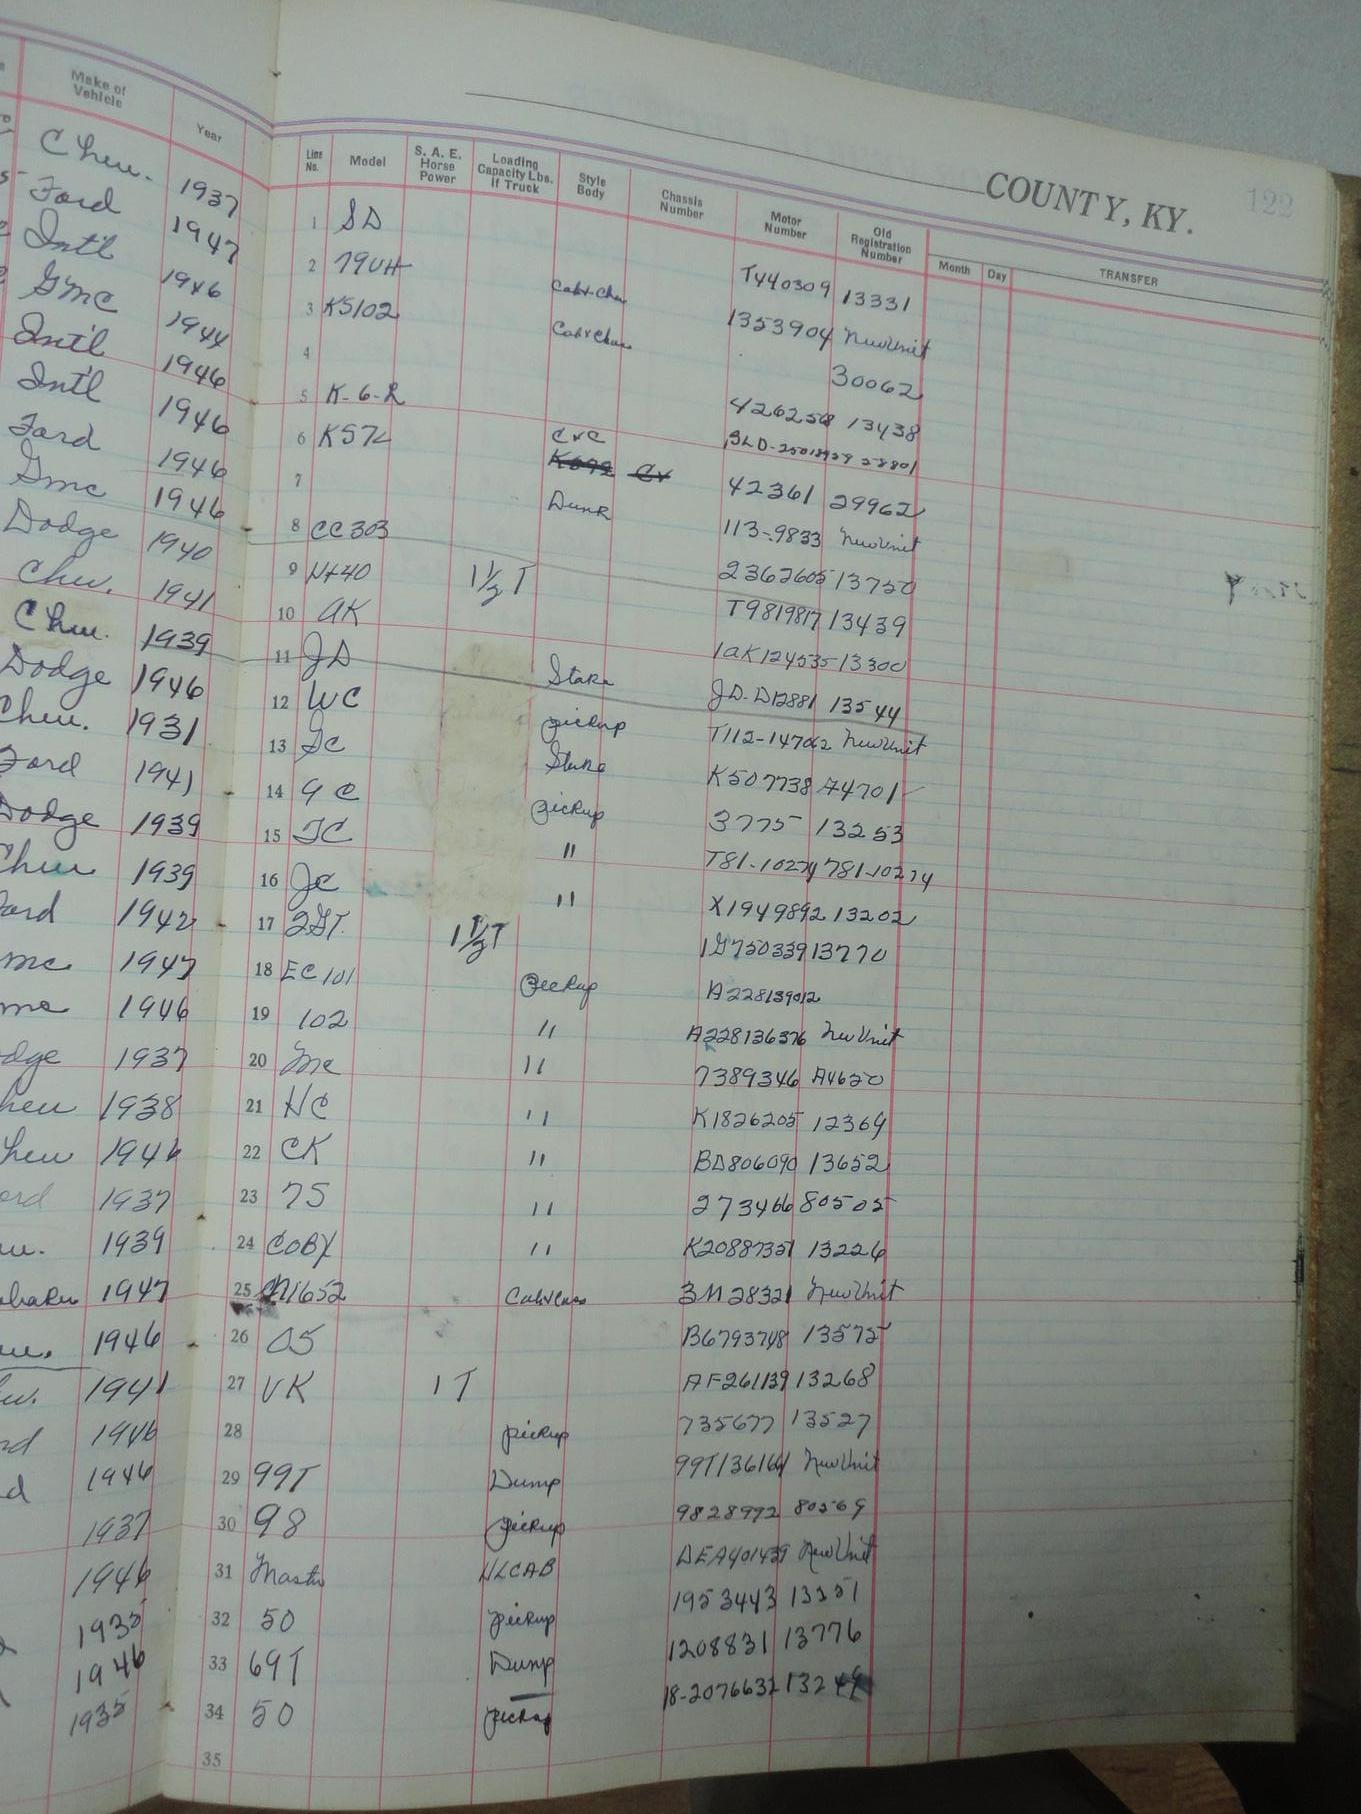 Make of Vehicle Year
Chev. 1937
Ford 1947
Int'l 1946
GMC 1944
Int'l 1946
Int'l 1946
Ford 1946
Gmc 1946
Dodge 1940
Chev. 1941
Chev. 1939
Dodge 1946
Chev. 1931
Ford 1941
Dodge 1939
Chev 1939
ord 1942
mc 1947
mc 1946
dge 1937
hev 1938
hev 1946
ord 1937
ev. 1939
ebaker 1947
ev. 1946
ev. 1941
rd 1946
d 1946
1937
1946
1935
1946
1935
COUNTY, KY. 122
Line No. Model S. A. E. Horse Power Loading Capacity Lbs. if Truck Style Body Chassis Number Motor Number Old Registration Number Month Day TRANSFER
1 SD T440309 13331
2 79UH Cab+Chas 1353904 New Unit
3 KS102 Cab+Chas 30062
4 426258 13438
5 K-6-R
6 KS72 C+C 42361 29962
7 Dump 113-9833 New Unit
8 CC303 2362605 13750
9 1½ T T9819817 13439
10 AK 1AK124535 13300
11 JD Stake JD-D12881 13544
12 WC pickup T112-14702 New Unit
13 TC Stake K507738 A4701
14 9C pickup 3775 13253
15 TC " T81-10274 781-10274
16 JC " X1949892 13202
17 2GT. 1½T 1G75033913770
18 EC101 Pickup A228139012
19 102 " A228136376 New Unit
20 Mc " 7389346 A4620
21 HC " K1826205 12369
22 CK " BD806090 13652
23 75 " 273466 80505
24 COBY " K2088735 13226
25 M1652 Cab+Chas 3M28321 New Unit
26 OS B6793748 13575
27 VK 1T AF261139 13268
28 pickup 735677 13527
29 99T Dump 99T136164 New Unit
30 98 pickup 9828992 80569
31 Master HLCAB DEA401439 New Unit
32 50 pickup 1953443 13351
33 69T Dump 1208831 13776
34 50 pickup 18-2076632 132
35